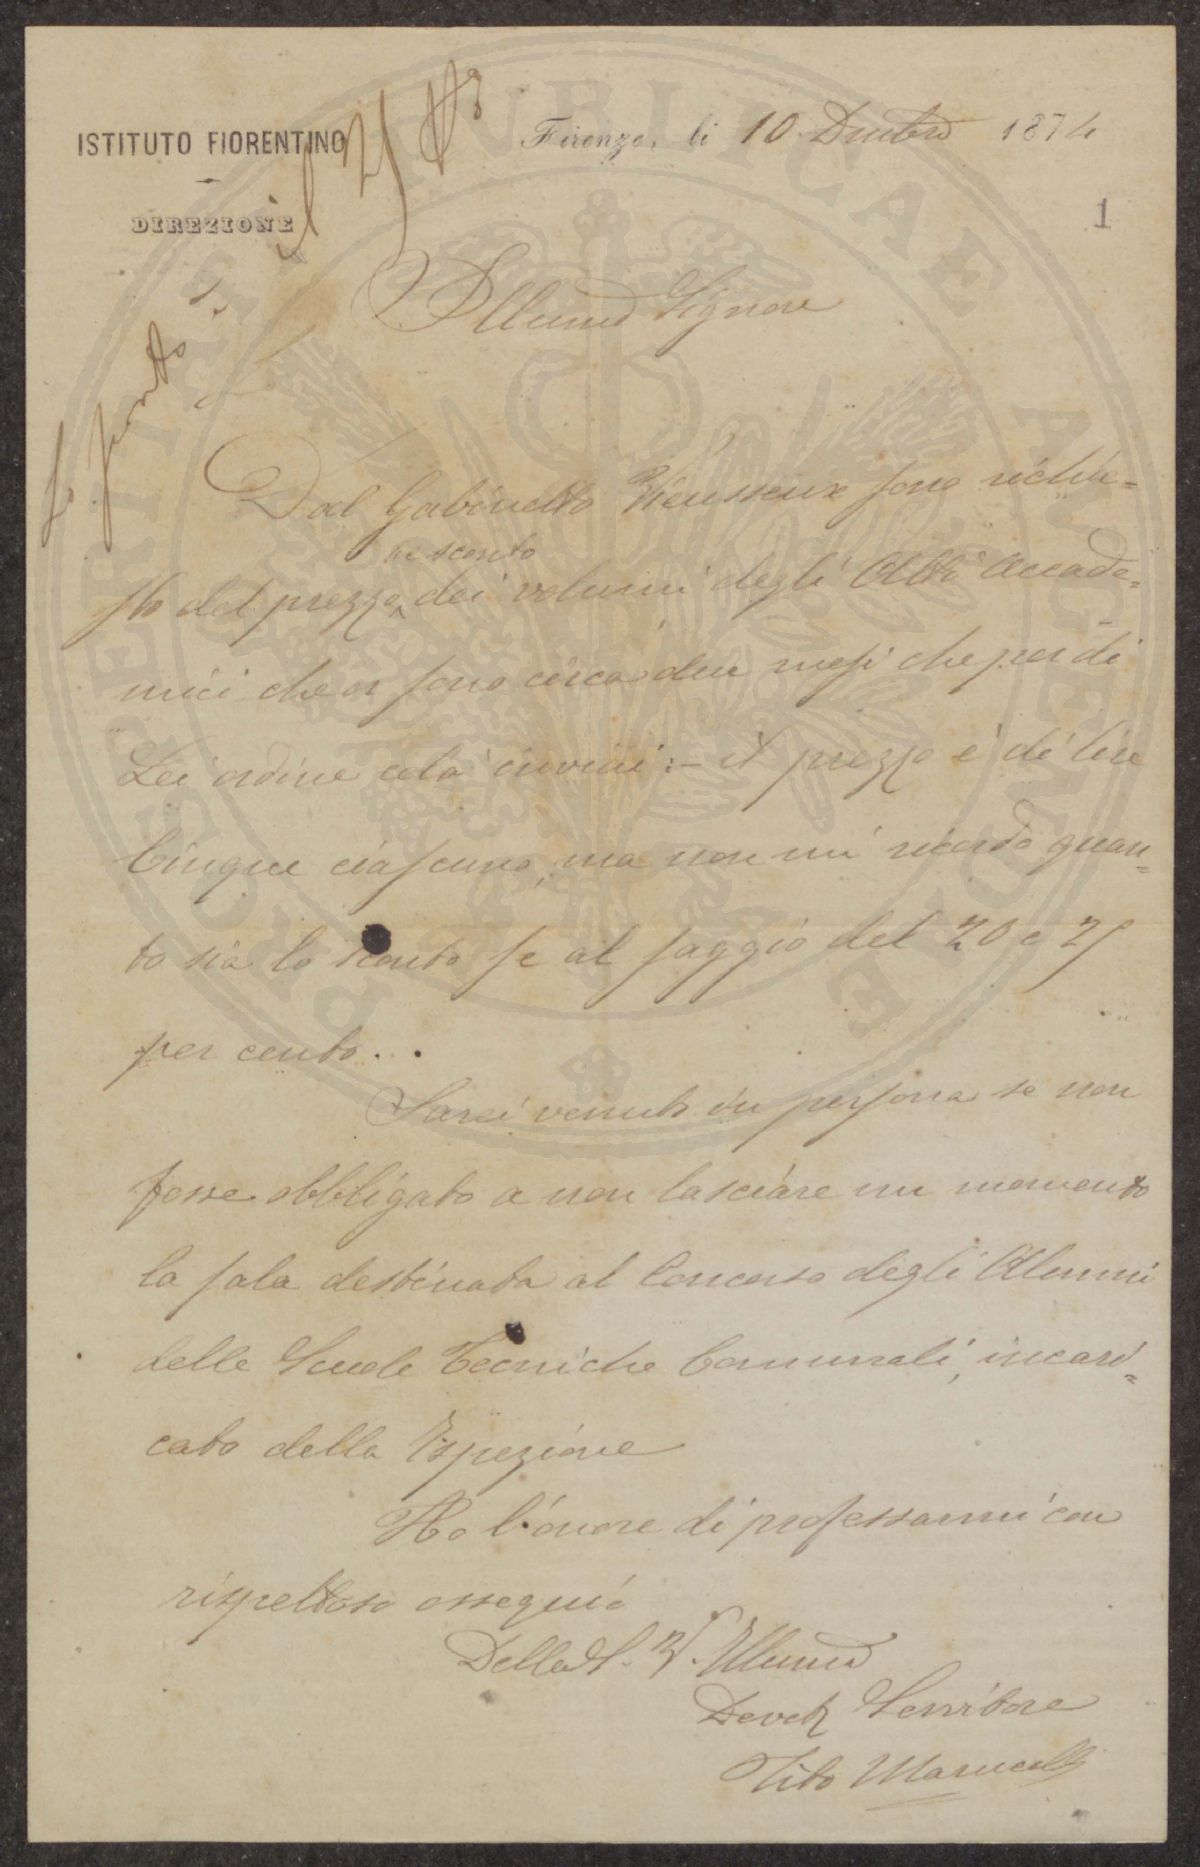 ISTITUTO FIORENTINO
DIREZIONE
Firenze, li 10 Dicembre 1874
1
Lo sconto è
il 25 p%
Illumo Signore
Dal Gabinetto Vieusseux sono richie=
sto del prezzo dei volumi degli Atti Accade=
e sconto
mici che or sono circa due mesi che per di
Lei ordine colà inviai :- il prezzo è di lire
Cinque ciascuno, ma non mi ricordo quan=
to sia lo sconto se al saggio del 20 o 25
per cento...
Sarei venuto in persona se non
fosse obbligato a non lasciare un momento
la sala destinata al Concorso degli Alunni
delle Scuole Tecniche Comunali, incari=
cato della Ispezione
Ho l'onore di professarmi con
rispettoso ossequio
Della S. V. Illuma
Devoto Servitore
Tito Marucelli
PROSPERITATI PUBLICAE AUGENDAE